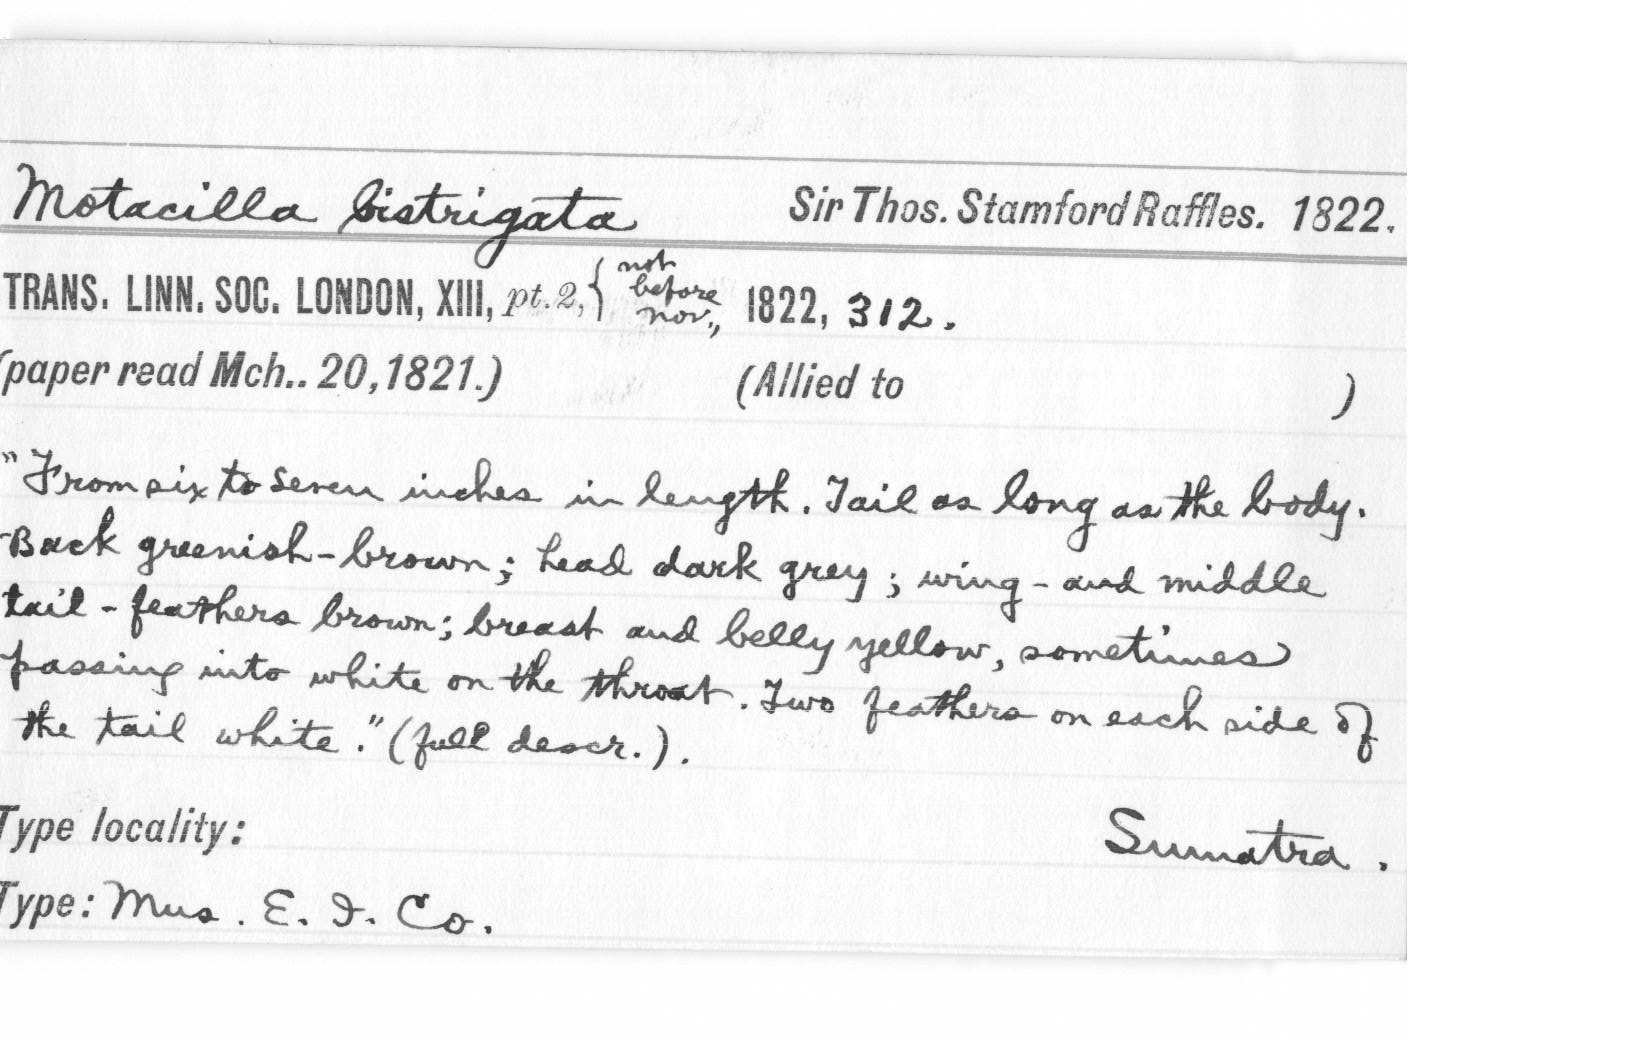 Motacilla bistrigata Sir Thos. Stamford Raffles. 1822.
TRANS. LINN. SOC. LONDON, XIII, pt. 2, { not before Nov., 1822, 312.
(paper read Mch.. 20,1821.) (Allied to )
"From six to seven inches in length. Tail as long as the body.
Back greenish-brown; head dark grey; wing- and middle
tail-feathers brown; breast and belly yellow, sometimes
passing into white on the throat. Two feathers on each side of
the tail white." (full descr.).
Type locality: Sumatra.
Type: Mus. E. I. Co.